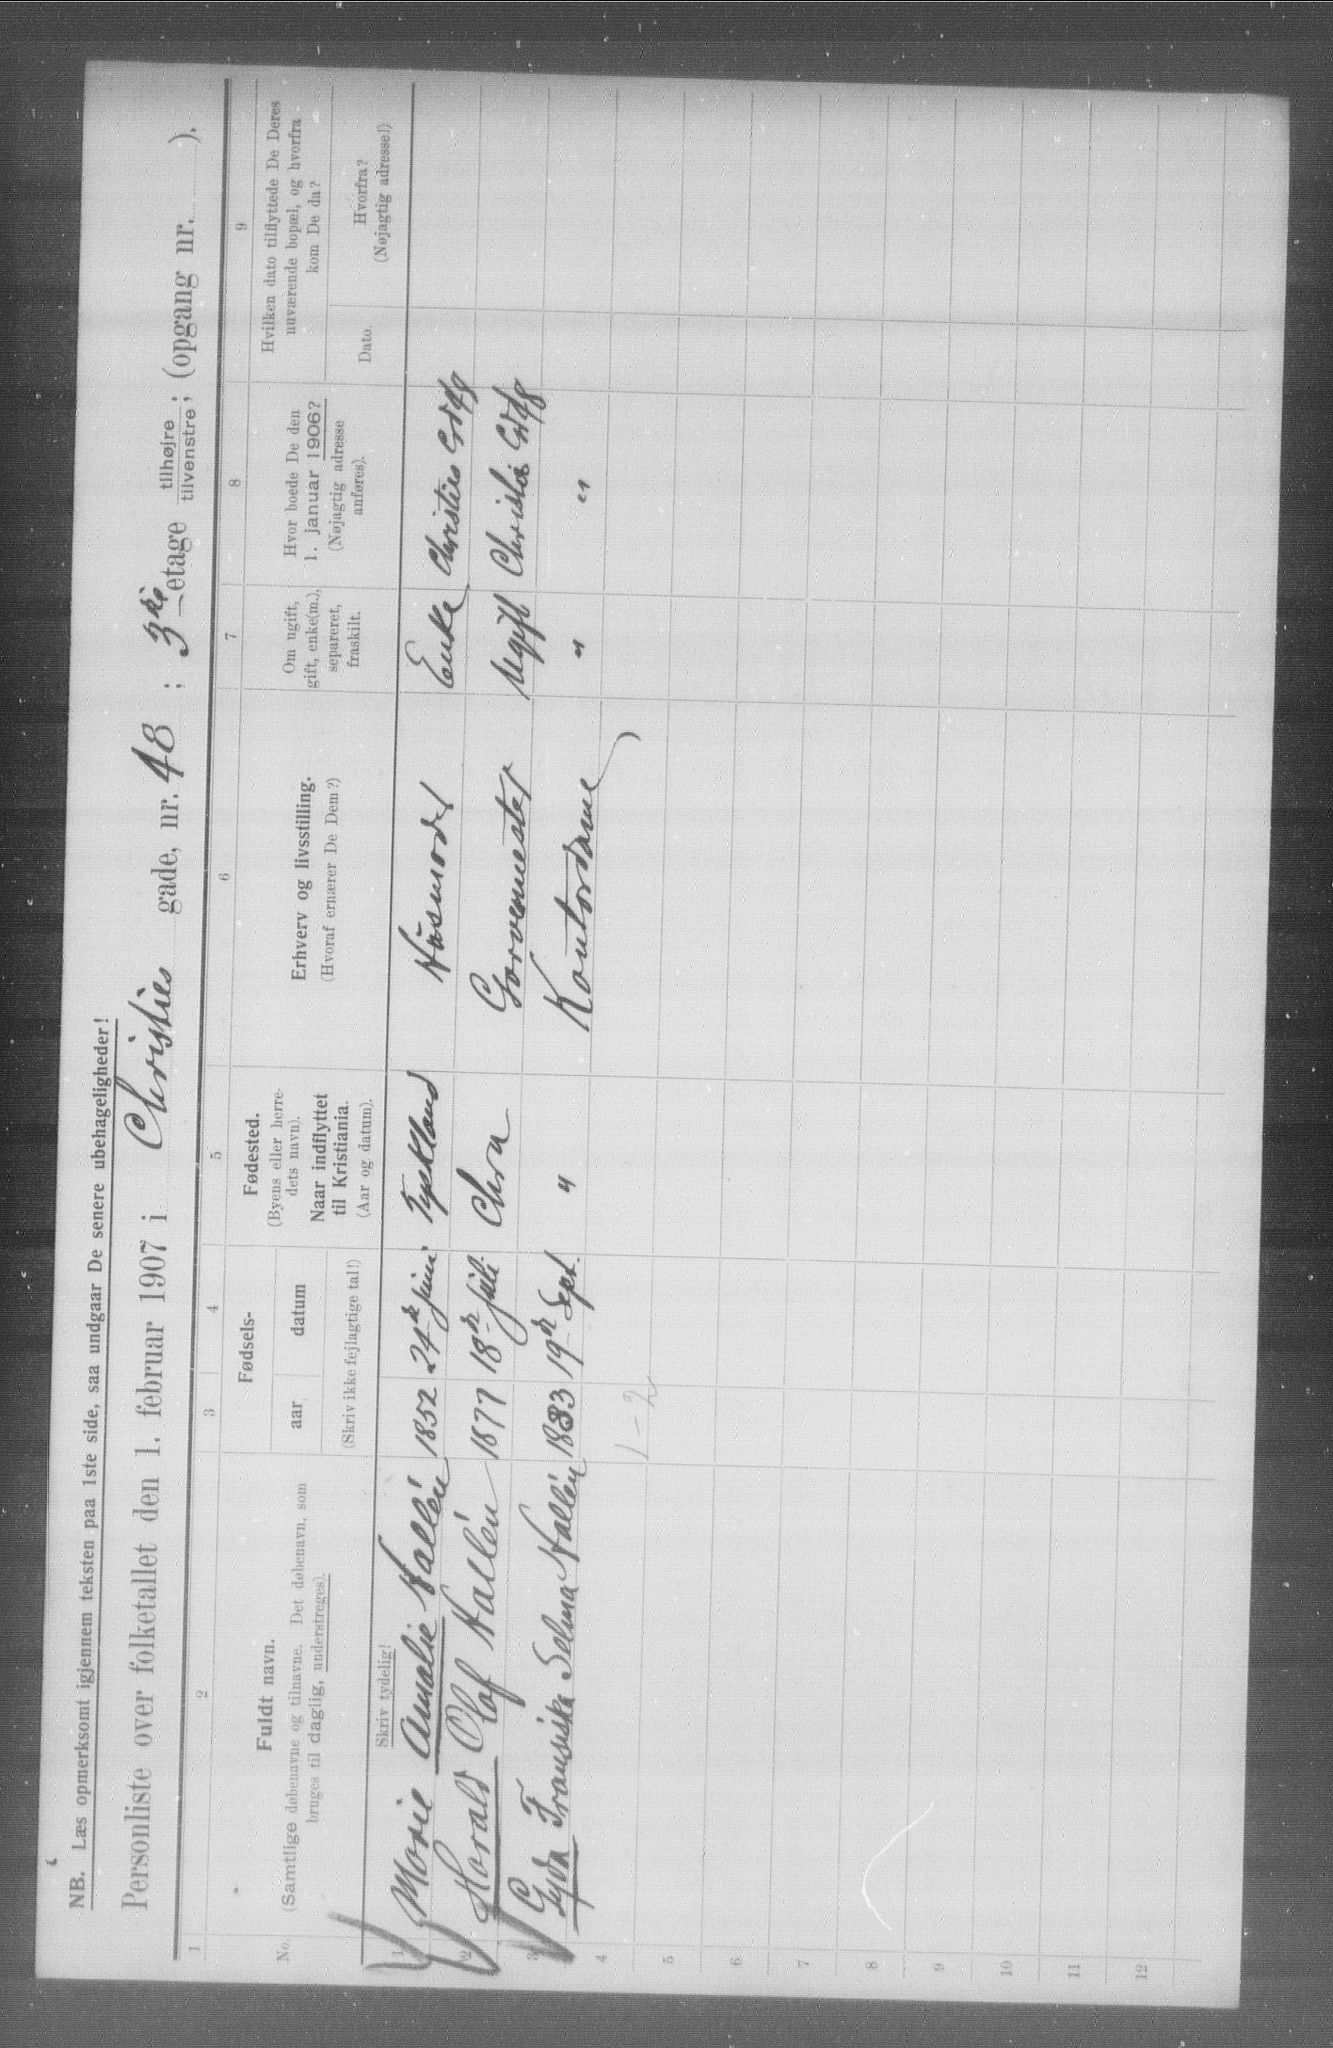 NB. Læs opmerksomt igjennem teksten paa 1ste side, saa undgaar De senere ubehageligheder!
Personliste over folketallet den 1. februar 1907 i Christies gade, nr. 48 ; 3die etage tilhøjre tilvenstre; (opgang nr. ).
1 2 3 4 5 6 7 8 9
No.
Fuldt navn.
(Samtlige døbenavne og tilnavne. Det døbenavn, som
bruges til daglig, understreges).
Skriv tydelig!
Fødsels-
aar datum
(Skriv ikke fejlagtige tal!)
Fødested.
(Byens eller herre-
dets navn).
Naar indflyttet
til Kristiania.
(Aar og datum).
Erhverv og livsstilling.
(Hvoraf ernærer De Dem?)
Om ugift,
gift, enke(m.),
separeret,
fraskilt.
Hvor boede De den
1. januar 1906?
(Nøjagtig adresse
anføres).
Hvilken dato tilflyttede De Deres
nuværende bopæl, og hvorfra
kom De da?
Dato.
Hvorfra?
(Nøjagtig adresse!)
1 Marie Amalie Hallén 1852 24de juni Tyskland Husmoder Enke Christies Gd 48
2 Harald Olaf Hallén 1877 18de juli Chra Garvemester Ugift Christies Gd 48
3 Gyda Fransiska Selma Hallén 1883 19de Sept. " Kontordame " "
1 - 2
4
5
6
7
8
9
10
11
12